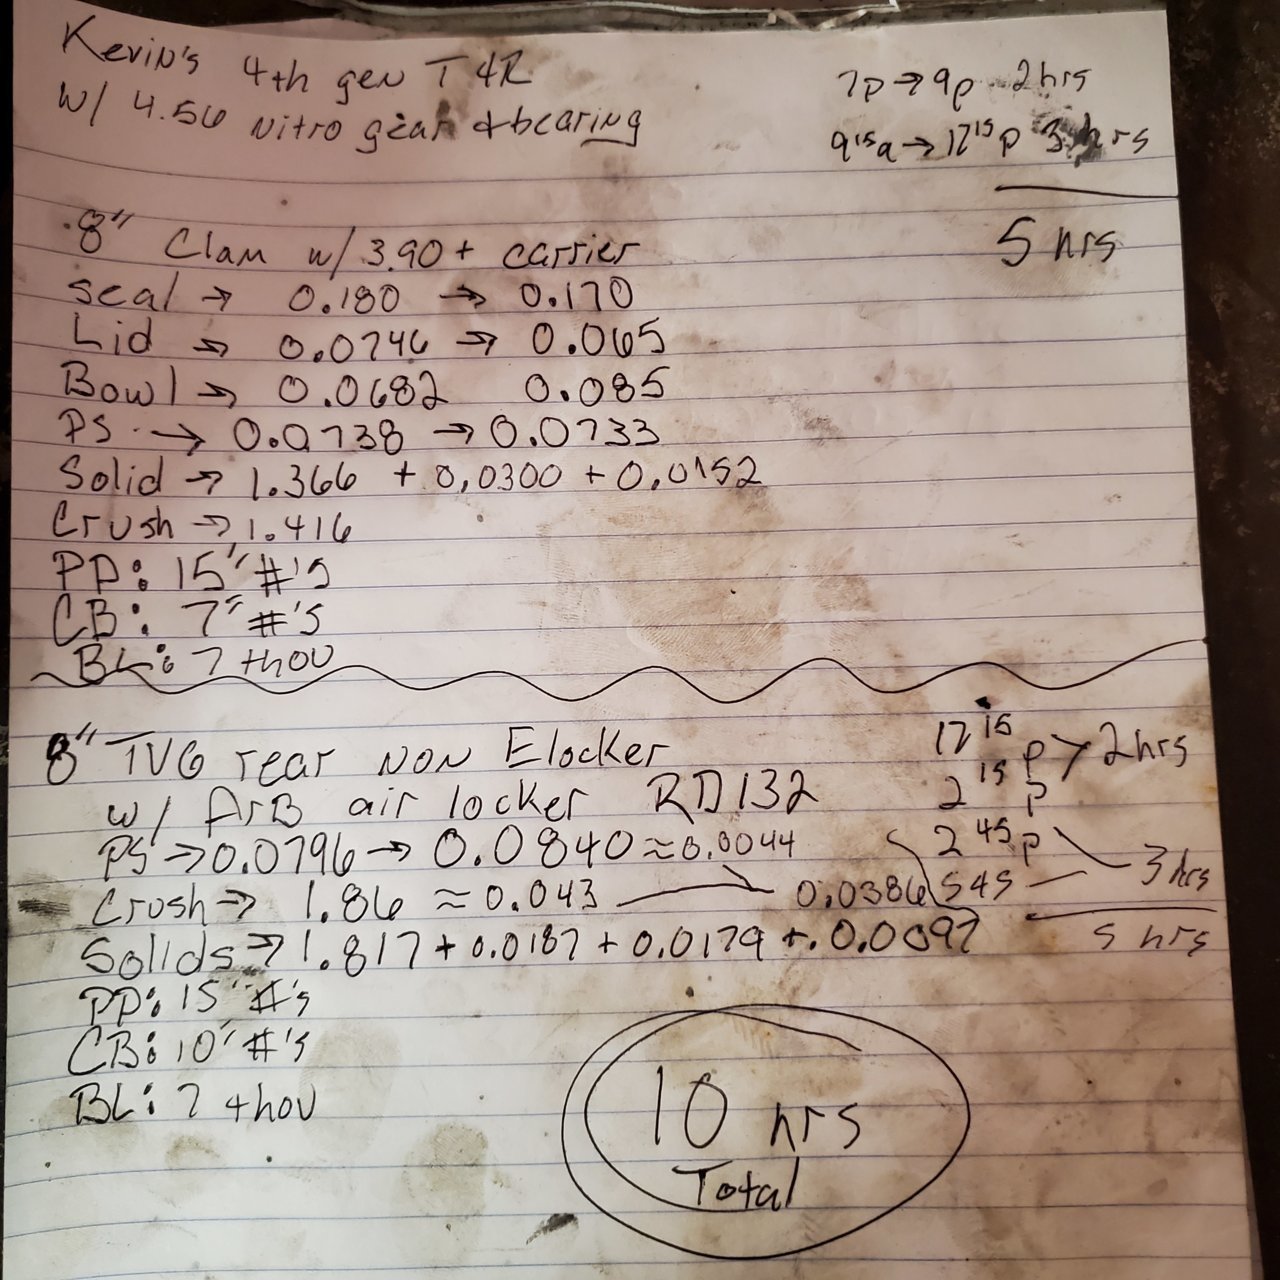 Kevin's 4th gen T4R
w/ 4.56 Nitro gear & bearing
7p → 9p 2 hrs
9¹⁵a → 12¹⁵p 3 hrs
5 hrs
8" Clam w/ 3.90+ carrier
seal → 0.180 → 0.170
Lid → 0.0746 → 0.065
Bowl → 0.0682 0.085
PS → 0.0738 → 0.0733
Solid → 1.366 + 0.0300 + 0.0152
Crush → 1.416
PP: 15"#'s
CB: 7"#'s
BL: 7 thou
8" TV6 rear NON Elocker
w/ ArB air locker RD132
12¹⁵p > 2 hrs
2¹⁵p
PS → 0.0796 → 0.0840 ≈ 0.0044
2⁴⁵p
Crush → 1.86 ≈ 0.043 → 0.0386
545 3 hrs
Solids → 1.817 + 0.0187 + 0.0179 + 0.0097
5 hrs
PP: 15"#'s
CB: 10"#'s
BL: 7 thou
10 hrs
Total